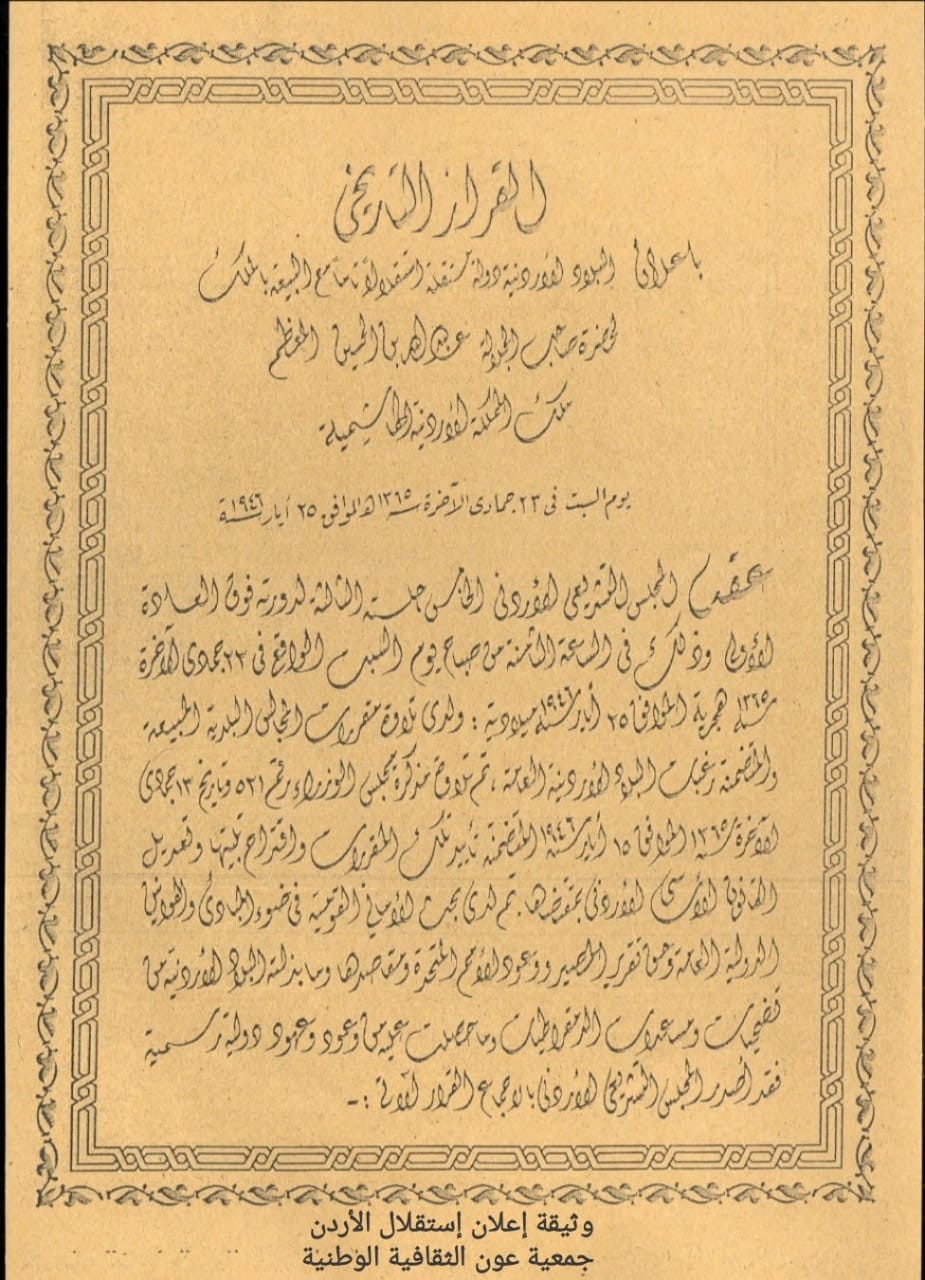 القرار التاريخي
باعلان البلاد الأردنية دولة مستقلة استقلالاً تاماً مع البيعة بالملك
لحضرة صاحب الجلالة عبد الله بن الحسين المعظم
ملك المملكة الأردنية الهاشمية
يوم السبت في ٢٣ جمادى الآخرة سنة ١٣٦٥ هـ الموافق ٢٥ أيار سنة ١٩٤٦
عقد المجلس التشريعي الأردني الخامس جلسته الثالثة لدورته فوق العادة
الأولى وذلك في الساعة الثامنة من صباح يوم السبت الواقع في ٢٣ جمادى الآخرة
سنة ١٣٦٥ هجرية الموافق ٢٥ أيار سنة ١٩٤٦ ميلادية : ولدى تلاوة مقررات المجالس البلدية المبيعة
والمتضمنة رغبات البلاد الأردنية العامة ، تم تلاوة مذكرة مجلس الوزراء رقم ٥٢١ وتاريخ ١٣ جمادى
الآخرة سنة ١٣٦٥ الموافق ١٥ أيار سنة ١٩٤٦ المتضمنة تأييد تلك المقررات واقتراح تلبيتها وتعديل
القانون الأساسي الأردني بمقتضاها. ثم لدى بحث الأماني القومية في ضوء المبادئ والمواثيق
الدولية العامة وحق تقرير المصير ووعود الأمم المتحدة ومقاصدها وما بذلته البلاد الأردنية من
تضحيات ومساعدات الديمقراطيات وما حصلت عليه من وعود وعهود دولية رسمية
فقد أصدر المجلس التشريعي الأردني بالاجماع القرار الآتي :ـ
وثيقة إعلان إستقلال الأردن
جمعية عون الثقافية الوطنية